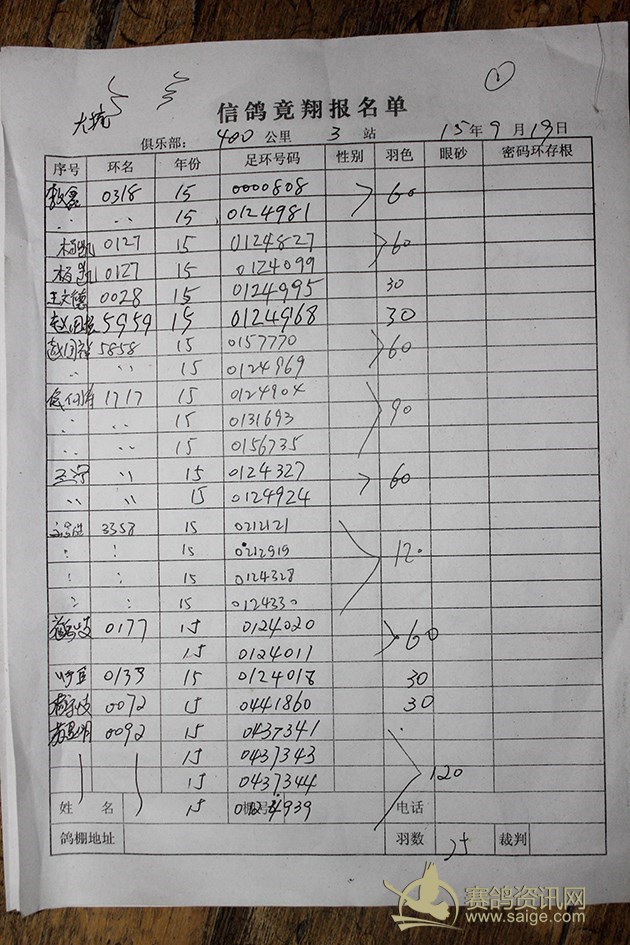 大坑
①
信鸽竟翔报名单
俱乐部: 400 公里 3 站 15年9月19日
序号 环名 年份 足环号码 性别 羽色 眼砂 密码环存根
0318 15 0000808 60
〃 〃 15 0124981
杨凯 0127 15 0124827 60
杨凯 0127 15 0124099
王文德 0028 15 0124995 30
5959 15 0124968 30
5858 15 0157770 60
〃 〃 15 0124969
1717 15 0124904 90
〃 〃 15 0131693
〃 〃 15 0156735
〃 15 0124327 60
〃 〃 15 0124924
3358 15 0212121 120
〃 〃 15 0212919
〃 〃 15 0124328
〃 〃 15 0124330
0177 15 0124020 60
15 0124011
0139 15 0124018 30
0072 15 0441860 30
0092 15 0437341 120
15 0437343
15 0437344
姓名 15 棚号 4939 电话
鸽棚地址 羽数 裁判
赛鸽资讯网
www.saige.com